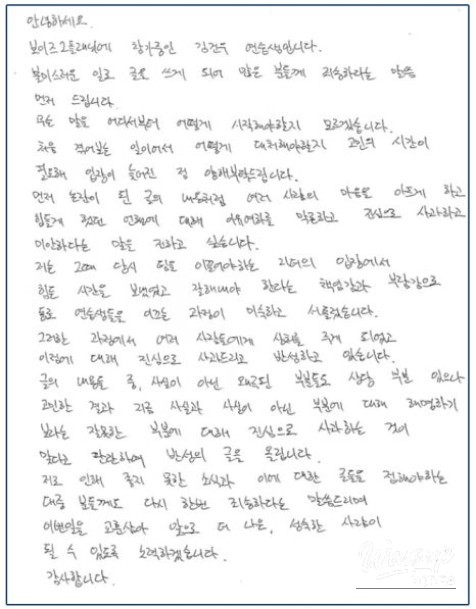 안녕하세요.
보이즈 2 플래닛에 참가중인 김건우 연습생입니다.
불미스러운 일로 글로 쓰게 되어 많은 분들께 죄송하다는 말씀
먼저 드립니다.
무슨 말을 어디서부터 어떻게 시작해야할지 모르겠습니다.
처음 겪어보는 일이어서 어떻게 대처해야할지 고민의 시간이
필요해 입장이 늦어진 점 양해부탁드립니다.
먼저 논란이 된 글의 내용처럼 여러 사람의 마음을 아프게 하고
힘들게 했던 언행에 대해 이유여하를 막론하고 진심으로 사과하고
미안하다는 말을 전하고 싶습니다.
저는 그때 당시 팀을 이끌어야하는 리더의 입장에서
힘든 시간을 보냈었고 잘해내야 한다는 책임감과 부담감으로
동료 연습생들을 이끄는 과정이 미숙하고 서툴렀습니다.
그러한 과정에서 여러 사람들에게 상처를 주게 되었고
이점에 대해 진심으로 사과드리고 반성하고 있습니다.
글의 내용들 중, 사실이 아닌 왜곡된 부분들도 상당 부분 있으나
고민한 결과 지금 사실과 사실이 아닌 부분에 대해 해명하기
보다는 잘못한 부분에 대해 진심으로 사과하는 것이
맞다고 판단하여 반성의 글을 올립니다.
저로 인해 좋지 못한 소식과 이에 대한 글들을 접해야하는
대중 분들께도 다시 한번 죄송하다는 말씀드리며
이번일을 교훈삼아 앞으로 더 나은, 성숙한 사람이
될 수 있도록 노력하겠습니다.
감사합니다.